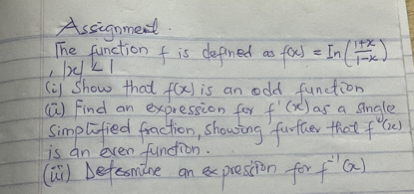 Assignment.
The function f is defined as f(x) = In(1+x/1-x)
, |x| < 1
(i) Show that f(x) is an odd function
(ii) Find an expression for f'(x) as a single
simplified fraction, showing further that f'(x)
is an even function.
(iii) Determine an expression for f⁻¹(x)